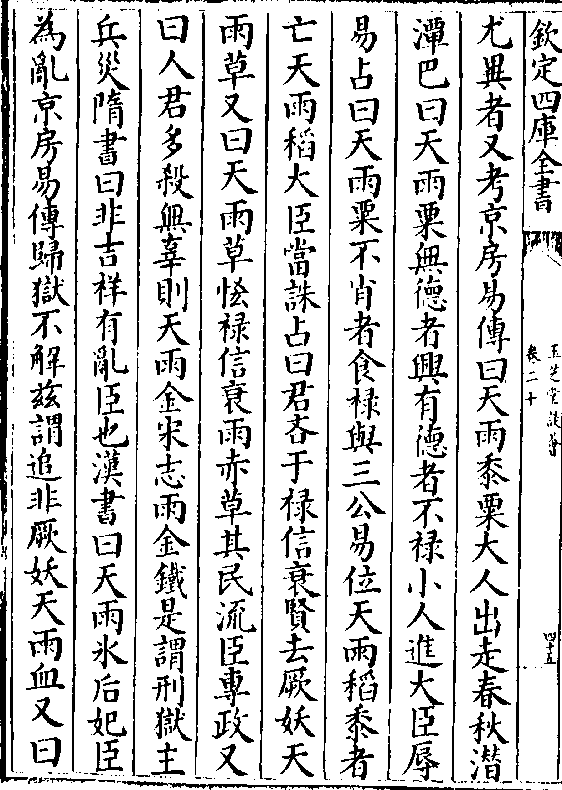 欽定四庫全書
玉芝堂談薈
卷二十
四十五
尤異者又考京房易傳曰天雨黍粟大人出走春秋潛
潭巴曰天雨粟無德者興有德者不祿小人進大臣辱
易占曰天雨粟不肖者食祿與三公易位天雨稻黍者
亡天雨稻大臣當誅占曰君吝于祿信衰賢去厥妖天
雨草又曰天雨草恡祿信衰雨赤草其民流臣專政又
曰人君多殺無辜則天雨金宋志雨金鐵是謂刑獄主
兵災隋書曰非吉祥有亂臣也漢書曰天雨氷后妃臣
為亂京房易傳歸獄不解兹謂追非厥妖天雨血又曰